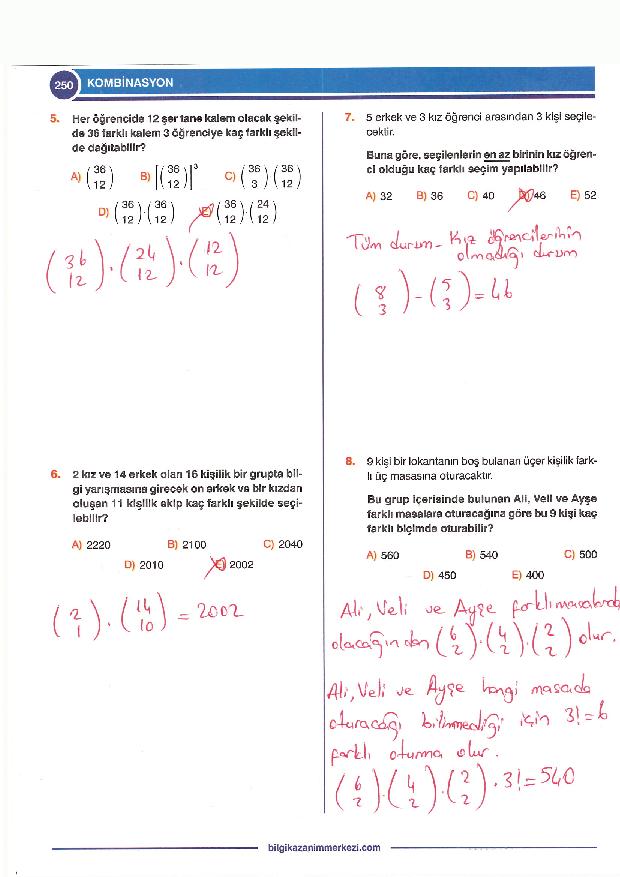 250 KOMBİNASYON
5. Her öğrencide 12 şer tane kalem olacak şekil-
de 36 farklı kalem 3 öğrenciye kaç farklı şekil-
de dağıtabilir?
A) (36 12) B) [(36 12)]³ C) (36 3) (36 12)
D) (36 12).(36 12) E) (36 12).(24 12)
(36 12).(24 12).(12 12)
6. 2 kız ve 14 erkek olan 16 kişilik bir grupta bil-
gi yarışmasına girecek on erkek ve bir kızdan
oluşan 11 kişilik ekip kaç farklı şekilde seçi-
lebilir?
A) 2220 B) 2100 C) 2040
D) 2010 E) 2002
(2 1).(14 10) = 2002
7. 5 erkek ve 3 kız öğrenci arasından 3 kişi seçile-
cektir.
Buna göre, seçilenlerin en az birinin kız öğren-
ci olduğu kaç farklı seçim yapılabilir?
A) 32 B) 36 C) 40 D) 46 E) 52
Tüm durum - Kız öğrencilerinin
olmadığı durum
(8 3) - (5 3) = 46
8. 9 kişi bir lokantanın boş bulunan üçer kişilik fark-
lı üç masasına oturacaktır.
Bu grup içerisinde bulunan Ali, Veli ve Ayşe
farklı masalara oturacağına göre bu 9 kişi kaç
farklı biçimde oturabilir?
A) 560 B) 540 C) 500
D) 450 E) 400
Ali, Veli ve Ayşe farklı masalarda
olacağından (6 2).(4 2).(2 2) olur.
Ali, Veli ve Ayşe hangi masada
oturacağı bilinmediği için 3! = 6
farklı oturma olur.
(6 2).(4 2).(2 2).3! = 540
bilgikazanimmerkezi.com